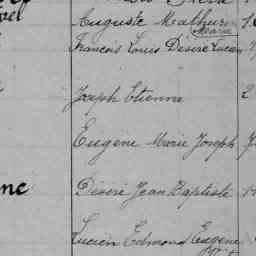 Auguste Mathurin
Marie
François Louis Désiré Lucien
Joseph Etienne 2
Eugène Marie Joseph
Désiré Jean Baptiste
Lucien Edmond Eugène